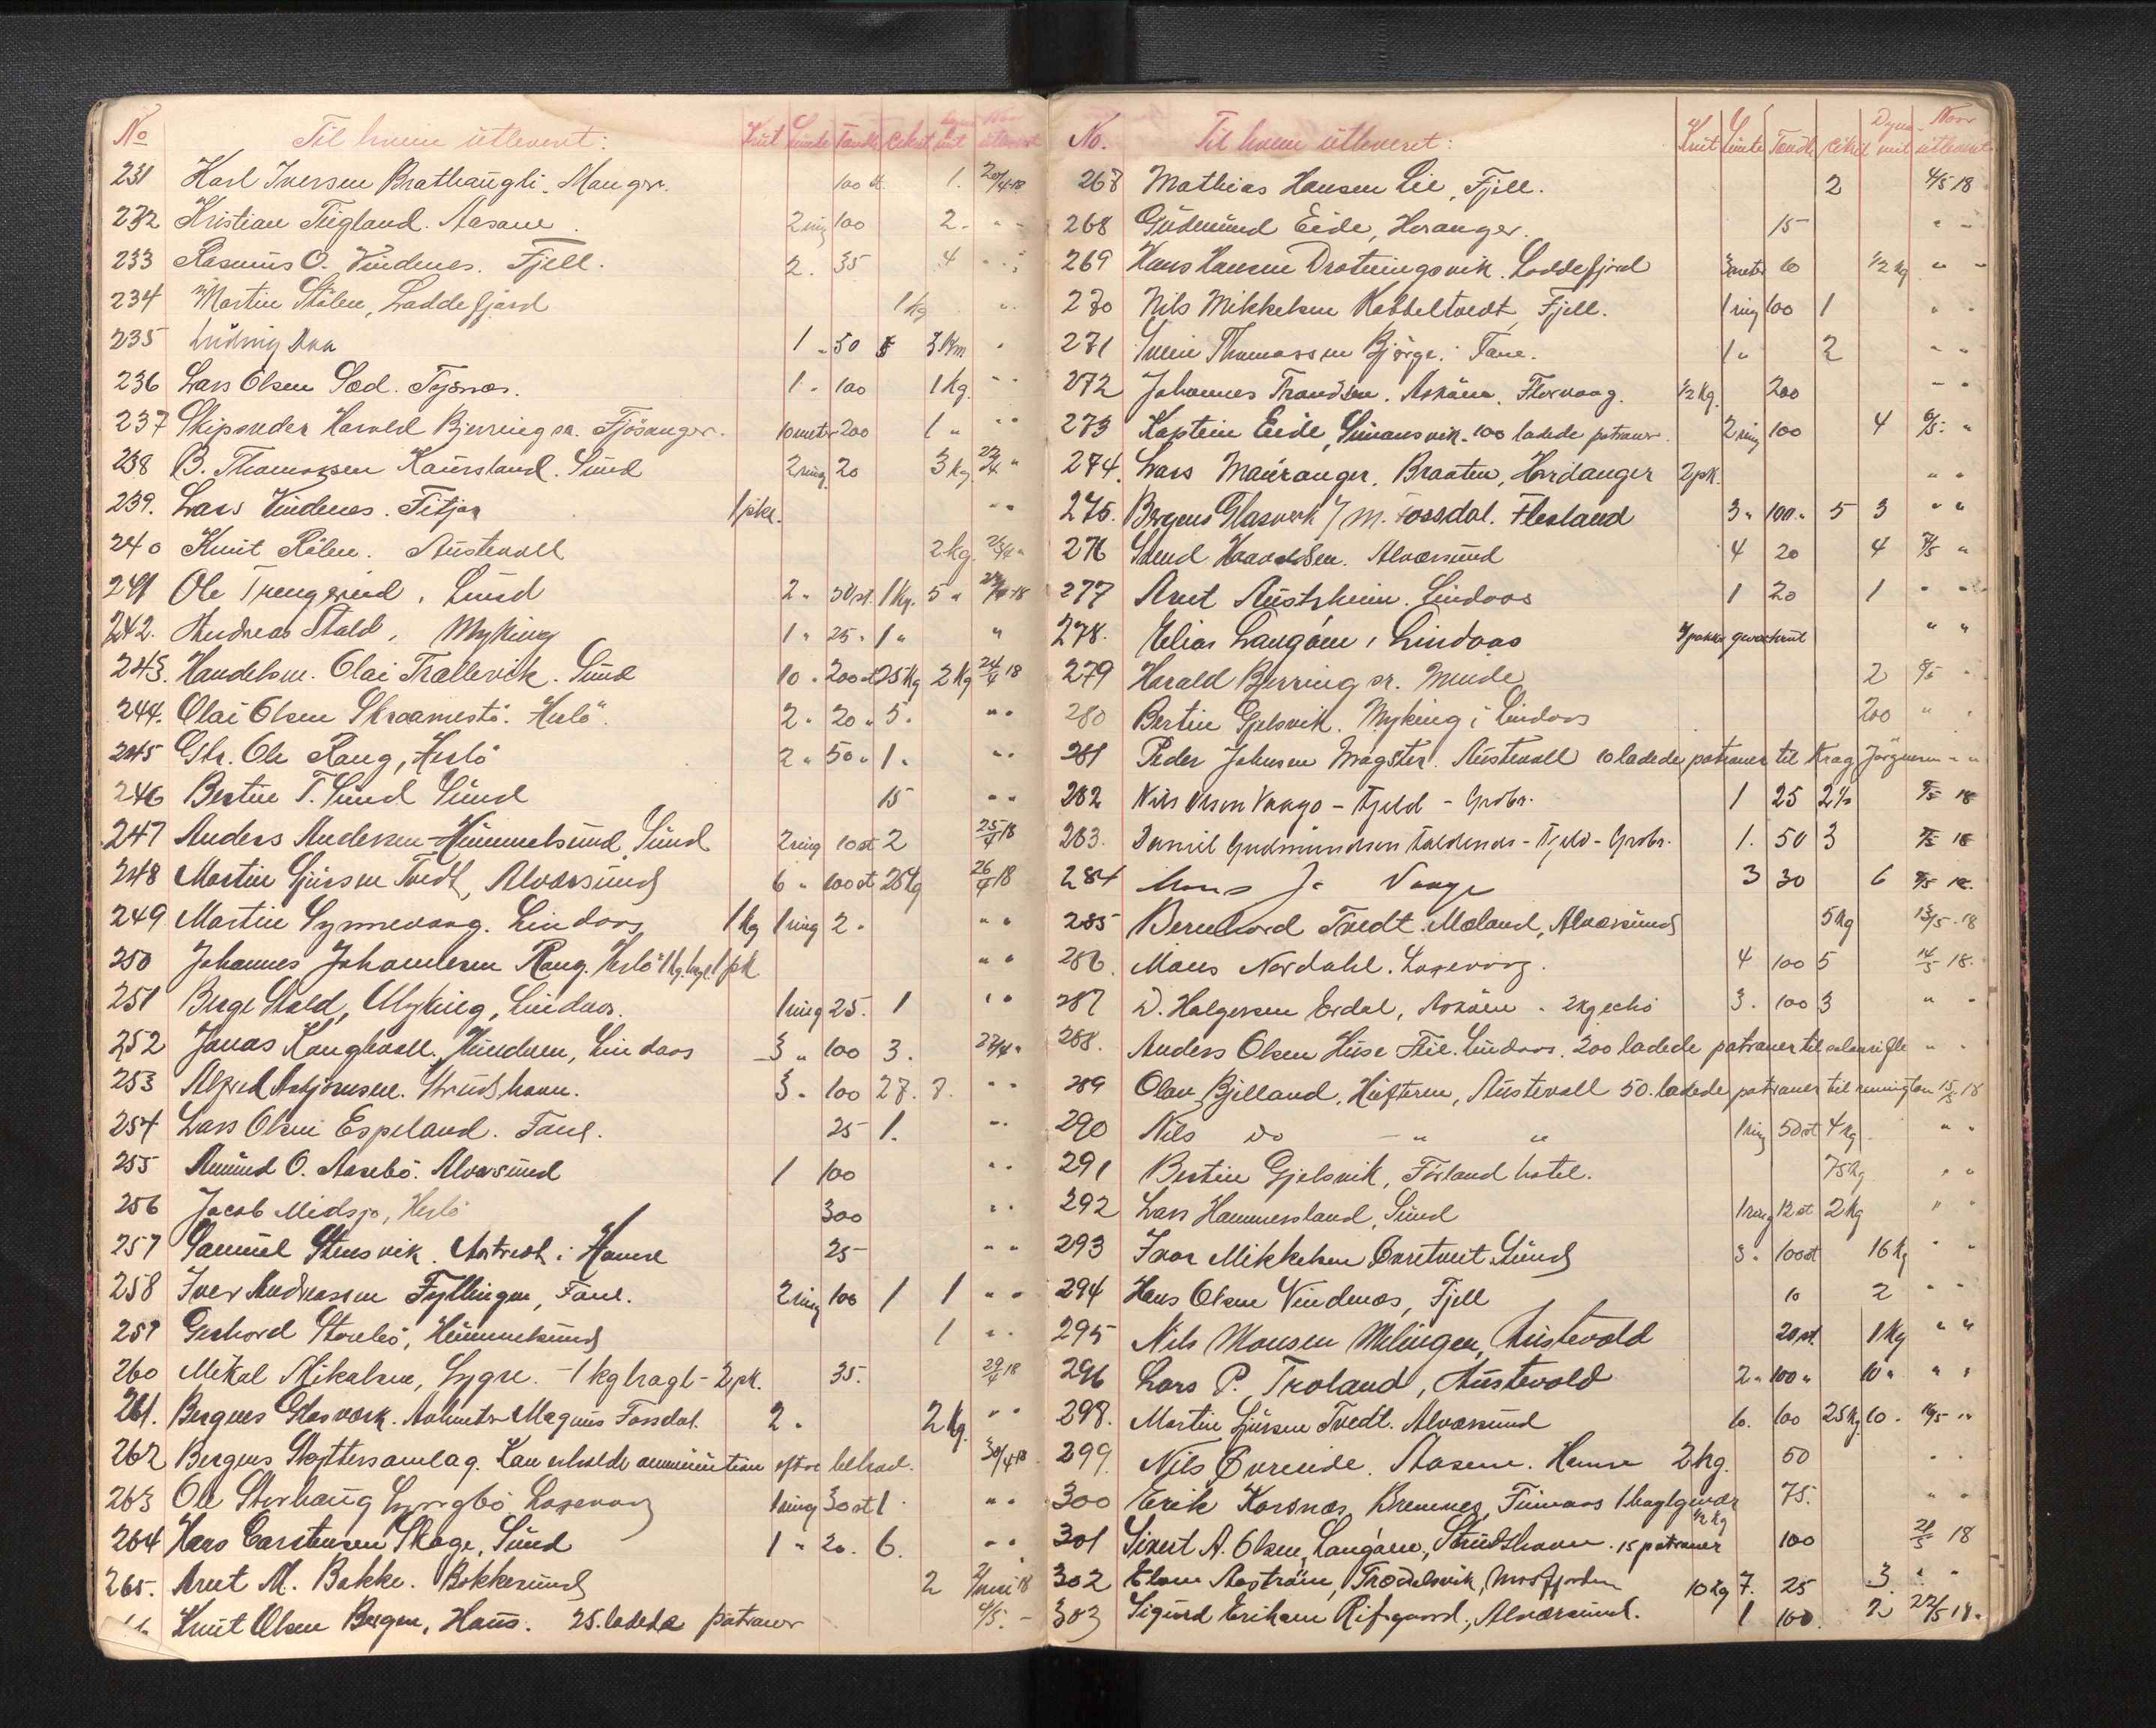 No Til hvem utleveret: Krut Lunte Tændh. Cekst Dynamit Naar utleveret
231 Karl Iversen Brathaugli. Manger. 100 st. 1. 20/4-18
232 Kristian Teigland. Aasane. 2 ring 100 2. " -
233 Rasmus O. Vindenes. Fjell. 2. 35 4 " "
234 Martin Stölen, Laddefjord 1 kg "
235 Ludvig 1 " 50 5 "
236 Lars Olsen Tysnes. 1 " 100 1 kg. " "
237 Skipsreder Harald Bjerring sr. Fjösanger. 10 meter 200 1 " " "
238 B. Thomassen Kaursland. Sund 2 ring. 20 3 kg. 22/4 "
239. Lars Vindenes. Fitjar 1 pke. " "
240 Knut Austevoll 2 kg. 23/4 "
241 Ole Trengereid. Sund 2. 50 st. 1 kg. 5 "
242. Andreas Stald, Myking 1 " 25 " 1 " "
243. Handelsm. Olai Trellevik. Sund 10 " 200 st 25 kg 2 kg 24/4 18
244. Olai Olsen Skraamestö. Herlö. 2 " 20 " 5. " "
245 Gbr. Ole Rong, Herlö 2 " 50 " 1 " " "
246 Bertin T. Sund Sund 15 " "
247 Anders Andersen Himmelsund. Sund 2 ring 10 st 2 25/4 18
248 Martin Sjursen Tvedt, Alversund 6 " 100 st 25 kg 26/4 18
249 Martin Synnevaag. Lindaas 1 kg 1 ring 2. " "
250 Johannes Johannesen Rong. Herlö 1 kg. 1 pk " "
251 Berge Stald, Myking, Lindaas. 1 ring 25. 1 " "
252 Jonas Lindaas 3 " 100 3. 27/4 "
253 Alfred Asbjörnsen. Strudshavn. 3 " 100 27. 7. " "
254 Lars Olsen Espeland. Fane. 25 1. " "
255 Amund O. Aasebö. Alversund 1 100 " "
256 Jacob Midsjo, Herlö 300 " "
257 Samuel Stensvik. i Hamre 25 " "
258 Iver Andreassen Fyllingen, Fane. 2 ring 100 1 1 " "
259 Gerhard Storebö, Himmelsund 1 " "
260 Mikal Mikalsen, Lygre. - 1 kg hagl - 2 pk. 35. 29/4 18
261. Bergens Glasværk. Magnus Fossdal. 2. 2 kg. " "
262 Bergens Skyttersamlag. Kan erholde ammunition efter behov. 30/4 18
263 Ole Storhaug 1 ring 30 st 1 " "
264 Hans Carstensen Skoge, Sund 1 " 20. 6. " "
265. Arnt M. Bakke. Bekkesund 2 2/mai 18
Knut Olsen Bergen, Haus. 25. ladede patroner 4/5. -
No. Til hvem utleveret: Krut Lunte Tændh. Cekst Dynamit Naar utleveret
267 Mathias Hansen Lie, Fjell. 2 4/5 18
268 Gudmund Eide, Hosanger. 15 " -
269 Hans Hansen Drotningsvik. Loddefjord 3 meter 10 1/2 kg " "
270 Nils Mikkelsen Kobbeltvedt, Fjell. 1 ring 100 1 " "
271 Thomassen Bjørge. Fane. 1 " 2 " "
272 Johannes Trondsen. Askøen. Florvaag. 1/2 kg. 200 " "
273 Kaptein Eide, Simonsvik. 100 ladede patroner. 2 ring 100 4 6/5. "
274. Lars Mauranger. Braaten, Hardanger 2 pk. " "
275. Bergens Glasverk v/ M. Fossdal. Flesland 3 " 100 " 5 3 " "
276 Haavaldsen. Alversund 4 20 4 7/5 "
277 Arnt Austrheim. Lindaas 1 20 1 " "
278. Elias Langøen, Lindaas pakker geværkrut " "
279 Harald Bjerring sr. Minde 2 8/5 "
280 Bertin Gjelsvik. Myking i Lindaas 200 " "
281 Peder Johnsen Møgster. Austevoll 10 ladede patroner til Krag Jørgensen " "
282 Nils Olsen Vaage - Fjeld - Grobr. 1 25 2 1/2 8/5 18
283. Daniel Gudmundsen - Fjeld - Grobr. 1. 50 3 8/5 18
284 Mons J. Vaage 3 30 6 8/5 18.
285 Bernhard Tvedt. Mæland, Alversund 5 kg 13/5. 18
286. Mons Nordahl. Laxevaag. 4 100 5 14/5 18.
287 D. Halgersen Erdal, Askøen. 2 kg echo 3. 100 3 " "
288. Anders Olsen Huse Lindaas. 200 ladede patroner til salonrifle " "
289 Olav Bjelland, Huftern, Austevoll 50. ladede patroner til remington 15/5 18
290 Nils do - " " 1 ring 50 st 4 kg " "
291 Bertin Gjelsvik,Førland hotel. 75 kg " "
292 Lars Hammersland, Sund 1 ring 12 st 2 kg " "
293 Ivar Mikkelsen Sund 3 " 100 st 16 kg " "
294 Hans Olsen Vindenes, Fjell 10 2 " "
295 Nils Monsen Melingen, Austevold 20 st. 1 kg " "
296 Lars P. Troland, Austevold 2 " 100 " 10 " " "
298. Martin Sjursen Tvedt. Alversund 10. 100 25 kg 10. 16/5 "
299 Nils Øvreeide. Aasene. Hamre 2 kg. 50 " "
300 Erik Korsnes, Bremnes, Finnaas 1 haglgevær 1/2 kg 75. " "
301 Sivert A. Olsen, Langøen, Strudshavn. 15 patroner 100 21/5 18
302 Elen Aaström, Trædelsvik, Mosfjorden 10 kg 7. 25 3. " "
303 Sigurd Eriksen Risgaard, Alversund. 1 100. 2 22/5 18.